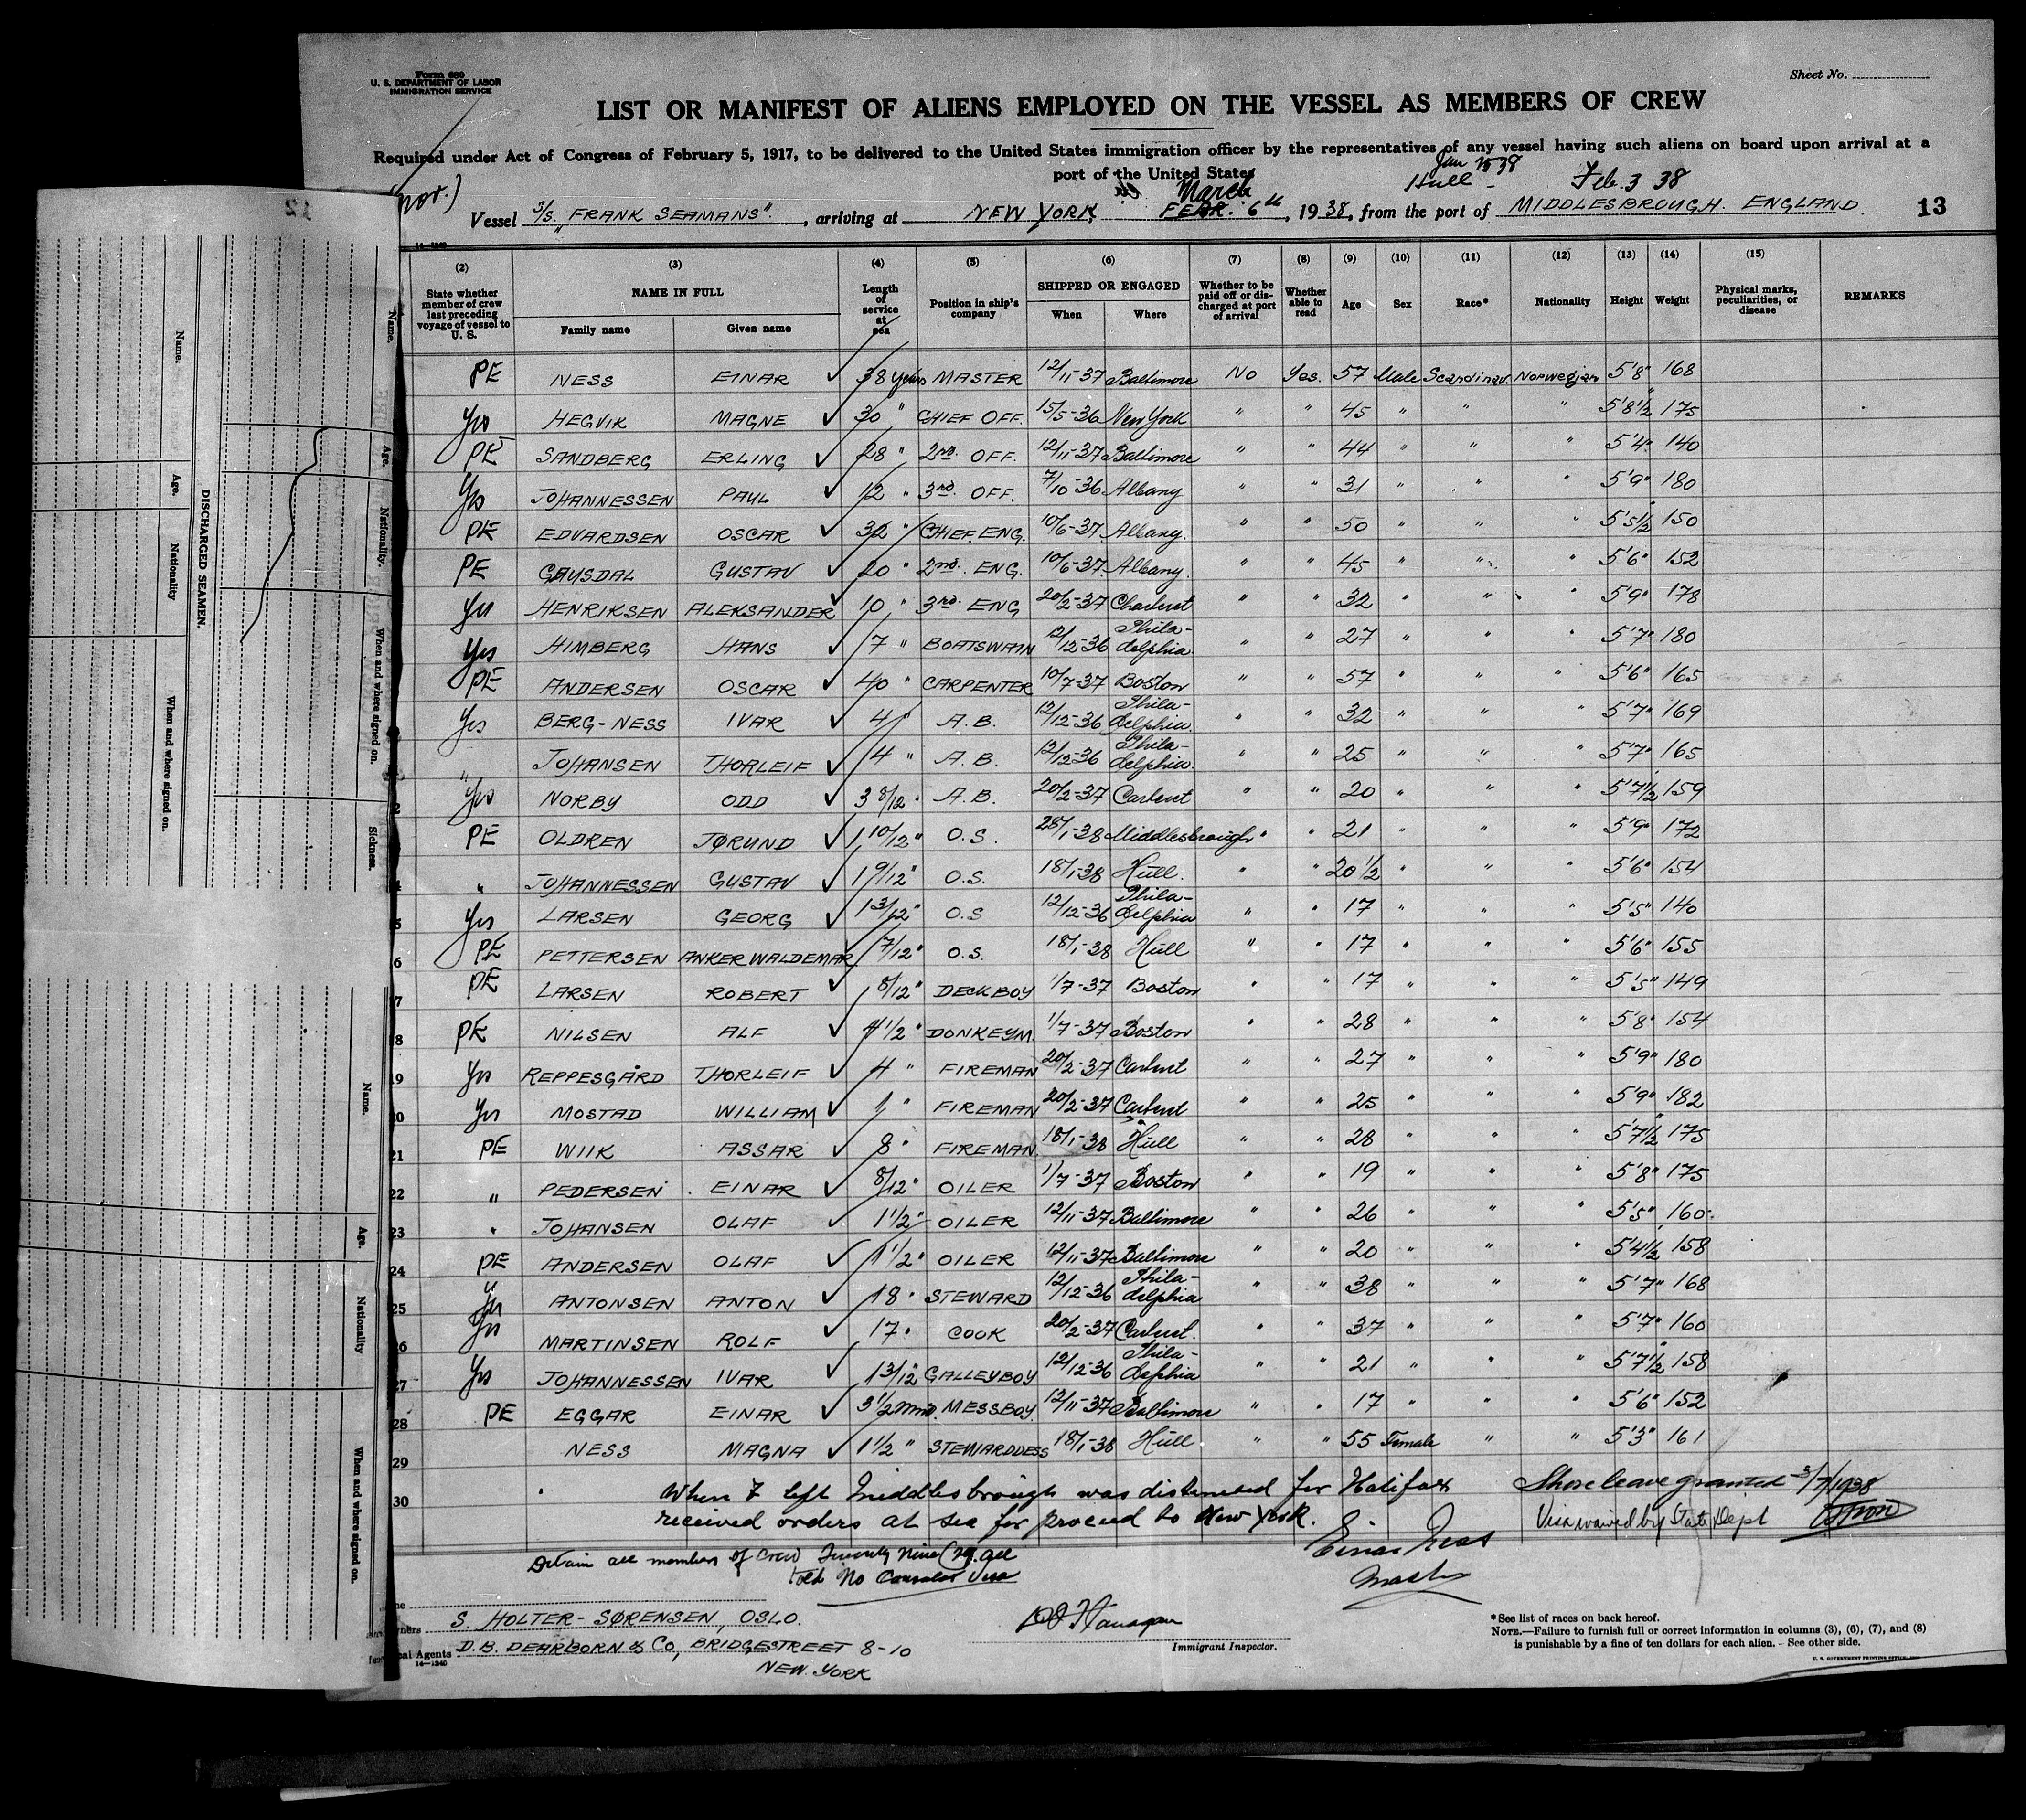 Form 680
U. S. DEPARTMENT OF LABOR
IMMIGRATION SERVICE
Sheet No.
LIST OR MANIFEST OF ALIENS EMPLOYED ON THE VESSEL AS MEMBERS OF CREW
Required under Act of Congress of February 5, 1917, to be delivered to the United States immigration officer by the representatives of any vessel having such aliens on board upon arrival at a
port of the United States
Hull - Jan 15 38 Feb. 3 38
(nor.)
March
Vessel S/S "FRANK SEAMANS", arriving at NEW YORK FEBR. 6th, 1938, from the port of MIDDLESBROUGH. ENGLAND 13
14-1240
(2) (3) (4) (5) (6) (7) (8) (9) (10) (11) (12) (13) (14) (15)
State whether member of crew last preceding voyage of vessel to U. S. NAME IN FULL Family name Given name Length of service at sea Position in ship's company SHIPPED OR ENGAGED When Where Whether to be paid off or discharged at port of arrival Whether able to read Age Sex Race* Nationality Height Weight Physical marks, peculiarities, or disease REMARKS
PE NESS EINAR ✓ 38 years MASTER 12/11-37 Baltimore No Yes. 57 Male Scandinav. Norwegian 5'8" 168
Yes HEGVIK MAGNE ✓ 30 " CHIEF OFF. 15/5-36 New York " " 45 " " " 5'8½ 175
PE SANDBERG ERLING ✓ 28 " 2nd. OFF. 12/11-37 Baltimore " " 44 " " " 5'4" 140
Yes JOHANNESSEN PAUL ✓ 12 " 3rd. OFF. 7/10-36 Albany " " 31 " " " 5'9" 180
PE EDVARDSEN OSCAR ✓ 32 " CHIEF. ENG. 10/6-37 Albany. " " 50 " " " 5'5½ 150
PE GAUSDAL GUSTAV ✓ 20 " 2nd. ENG. 10/6-37. Albany. " " 45 " " " 5'6" 152
Yes HENRIKSEN ALEKSANDER ✓ 10 " 3rd. ENG 20/2-37 " " 32 " " " 5'9" 178
Yes HIMBERG HANS ✓ 7 " BOATSWAIN 12/12-36 Phila-delphia " " 27 " " " 5'7" 180
PE ANDERSEN OSCAR ✓ 40 " CARPENTER 10/7-37 Boston " " 57 " " " 5'6" 165
Yes BERG-NESS IVAR ✓ 4 " A.B. 12/12-36 Phila-delphia. " " 32 " " " 5'7" 169
" JOHANSEN THORLEIF ✓ 4 " A.B. 12/12-36 Phila-delphia. " " 25 " " " 5'7" 165
2 Yes NORBY ODD ✓ 3 8/12 " A.B. 20/2-37 " " 20 " " " 5'7½ 159
PE OLDREN JØRUND ✓ 1 10/12 " O.S. 28/1-38 Middlesbrough " " 21 " " " 5'9" 172
4 " JOHANNESSEN GUSTAV ✓ 1 9/12 " O.S. 18/1-38 Hull. " " 20½ " " " 5'6" 154
5 Yes LARSEN GEORG ✓ 1 3/12 " O.S 12/12-36 Phila-delphia " " 17 " " " 5'5" 140
6 PE PETTERSEN ANKER WALDEMAR 17/12 " O.S. 18/1-38 Hull " " 17 " " " 5'6" 155
7 PE LARSEN ROBERT ✓ 8/12 " DECKBOY 1/7-37 Boston " " 17 " " " 5'5" 149
8 PE NILSEN ALF ✓ 4½ " DONKEYM. 1/7-37 Boston " " 28 " " " 5'8" 154
19 Yes REPPESGÅRD THORLEIF ✓ 4 " FIREMAN 20/2-37 " " 27 " " " 5'9" 180
20 Yes MOSTAD WILLIAM ✓ 1 " FIREMAN 20/2-37 " " 25 " " " 5'9" 182
21 PE WIIK ASSAR ✓ 8 " FIREMAN. 18/1-38 Hull " " 28 " " " 5'7½ 175
22 " PEDERSEN EINAR ✓ 8/12 " OILER 1/7-37 Boston " " 19 " " " 5'8" 175
23 " JOHANSEN OLAF ✓ 1½ " OILER 12/11-37 Baltimore " " 26 " " " 5'5" 160
24 PE ANDERSEN OLAF ✓ 1½ " OILER 12/11-37 Baltimore " " 20 " " " 5'4½ 158
25 Yes ANTONSEN ANTON ✓ 18 " STEWARD 12/12-36 Phila-delphia " " 38 " " " 5'7" 168
26 Yes MARTINSEN ROLF ✓ 17 " COOK 20/2-37 " " 37 " " " 5'7" 160
27 Yes JOHANNESSEN IVAR ✓ 1 3/12 " GALLEYBOY 12/12-36 Phila-delphia " " 21 " " " 5'7½ 158
28 PE EGGAR EINAR ✓ 3½ mnd. MESSBOY. 12/11-37 Baltimore " " 17 " " " 5'6" 152
29 NESS MAGNA ✓ 1½ " STEWARDDESS 18/1-38 Hull " " 55 Female " " 5'3" 161
30 When I left Middlesbrough was distineted for Halifax Shore leave granted 3/7/1938
received orders at sea for proceed to New York. Visa waived by State Dept
Einar Ness
Master
Detain all members of crew Twenty Nine (29) all
told No Consular Visa
S. HOLTER-SØRENSEN, OSLO.
D.B. DEARBORN & CO, BRIDGESTREET 8-10
NEW YORK
14-1240
Immigrant Inspector.
*See list of races on back hereof.
NOTE.—Failure to furnish full or correct information in columns (3), (6), (7), and (8)
is punishable by a fine of ten dollars for each alien. - See other side.
U. S. GOVERNMENT PRINTING OFFICE
DISCHARGED SEAMEN.
Name. Age. Nationality When and where signed on.
Name. Age. Nationality. When and where signed on. Sickness.
Name. Age. Nationality When and where signed on.